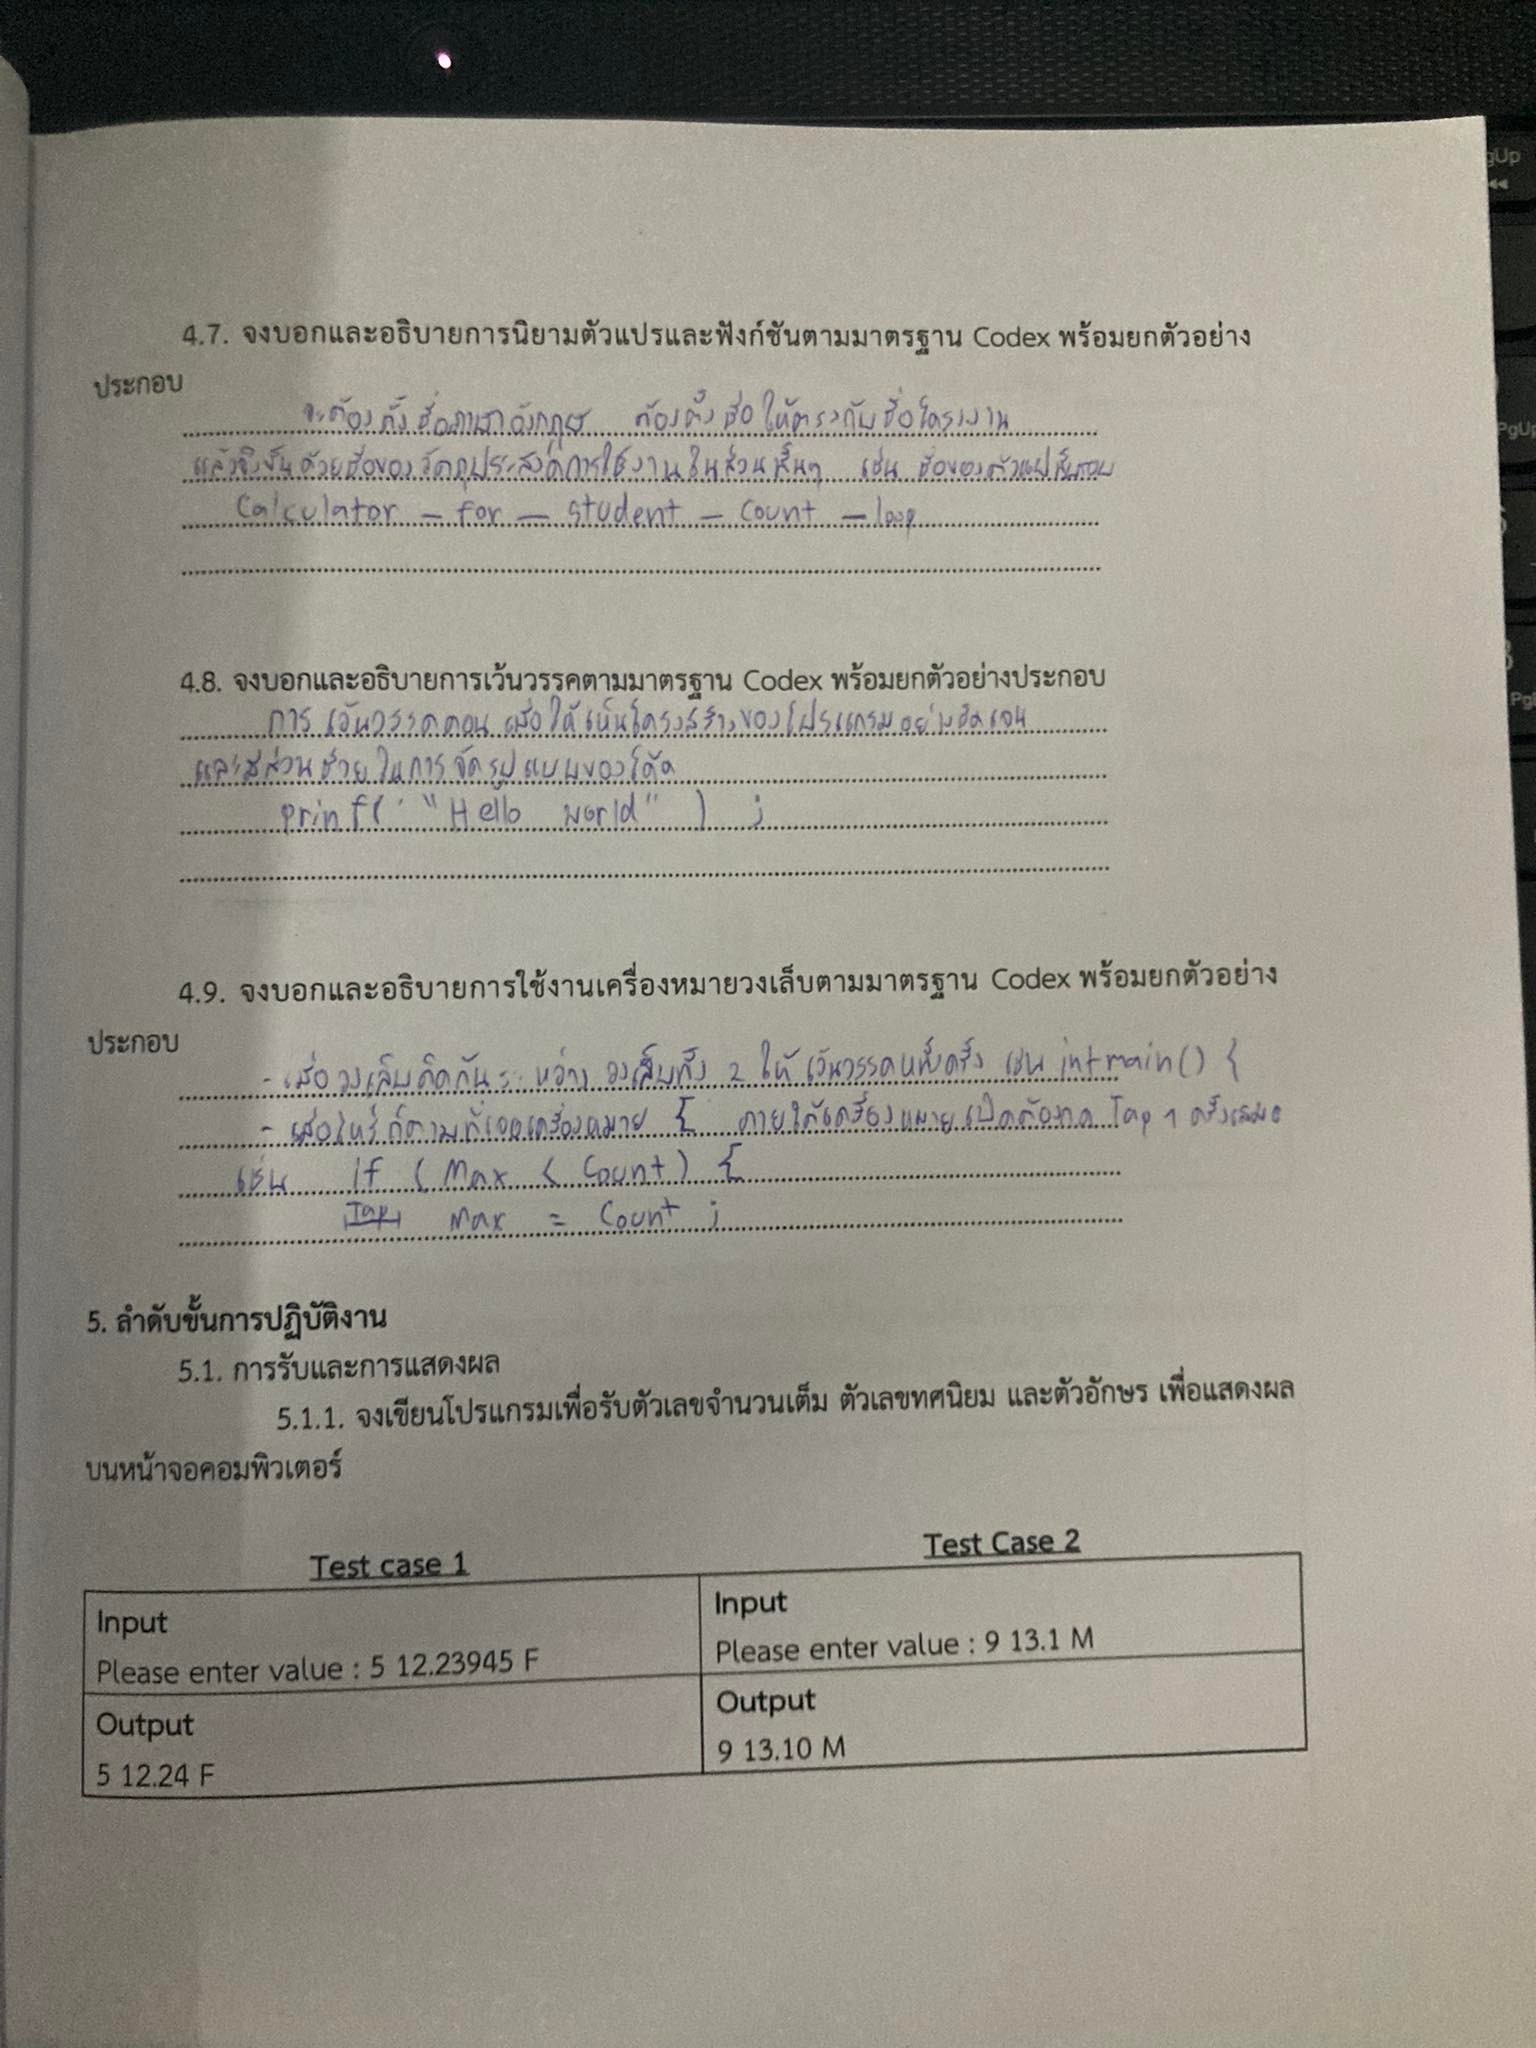 gUp
PgUp
4.7. จงบอกและอธิบายการนิยามตัวแปรและฟังก์ชันตามมาตรฐาน Codex พร้อมยกตัวอย่าง
ประกอบ
จะต้องตั้งชื่อภาษาอังกฤษ ต้องตั้งชื่อให้ตรงกับชื่อโครงงาน
แล้วจึงขั้นด้วยชื่อของวัตถุประสงค์การใช้งานในส่วนนั้นๆ เช่น ชื่อของตัวแปร
Calculator - for - student - Count - loop
4.8. จงบอกและอธิบายการเว้นวรรคตามมาตรฐาน Codex พร้อมยกตัวอย่างประกอบ
การเว้นวรรคตอน เพื่อให้เห็นโครงสร้างของโปรแกรมอย่างชัดเจน
และมีส่วนช่วยในการจัดรูปแบบของโค้ด
prinf( "Hello world" ) ;
4.9. จงบอกและอธิบายการใช้งานเครื่องหมายวงเล็บตามมาตรฐาน Codex พร้อมยกตัวอย่าง
ประกอบ
- เมื่อวงเล็บติดกันระหว่าง วงเล็บทั้ง 2 ให้เว้นวรรคหนึ่งครั้ง เช่น int main() {
- เมื่อไหร่ก็ตามที่เจอเครื่องหมาย { ภายใต้เครื่องหมายเปิดต้องกด Tap 1 ครั้งเสมอ
เช่น if ( Max < Count ) {
Tap Max = Count ;
5. ลำดับขั้นการปฏิบัติงาน
5.1. การรับและการแสดงผล
5.1.1. จงเขียนโปรแกรมเพื่อรับตัวเลขจำนวนเต็ม ตัวเลขทศนิยม และตัวอักษร เพื่อแสดงผล
บนหน้าจอคอมพิวเตอร์
Test case 1
Input
Please enter value : 5 12.23945 F
Output
5 12.24 F
Test Case 2
Input
Please enter value : 9 13.1 M
Output
9 13.10 M